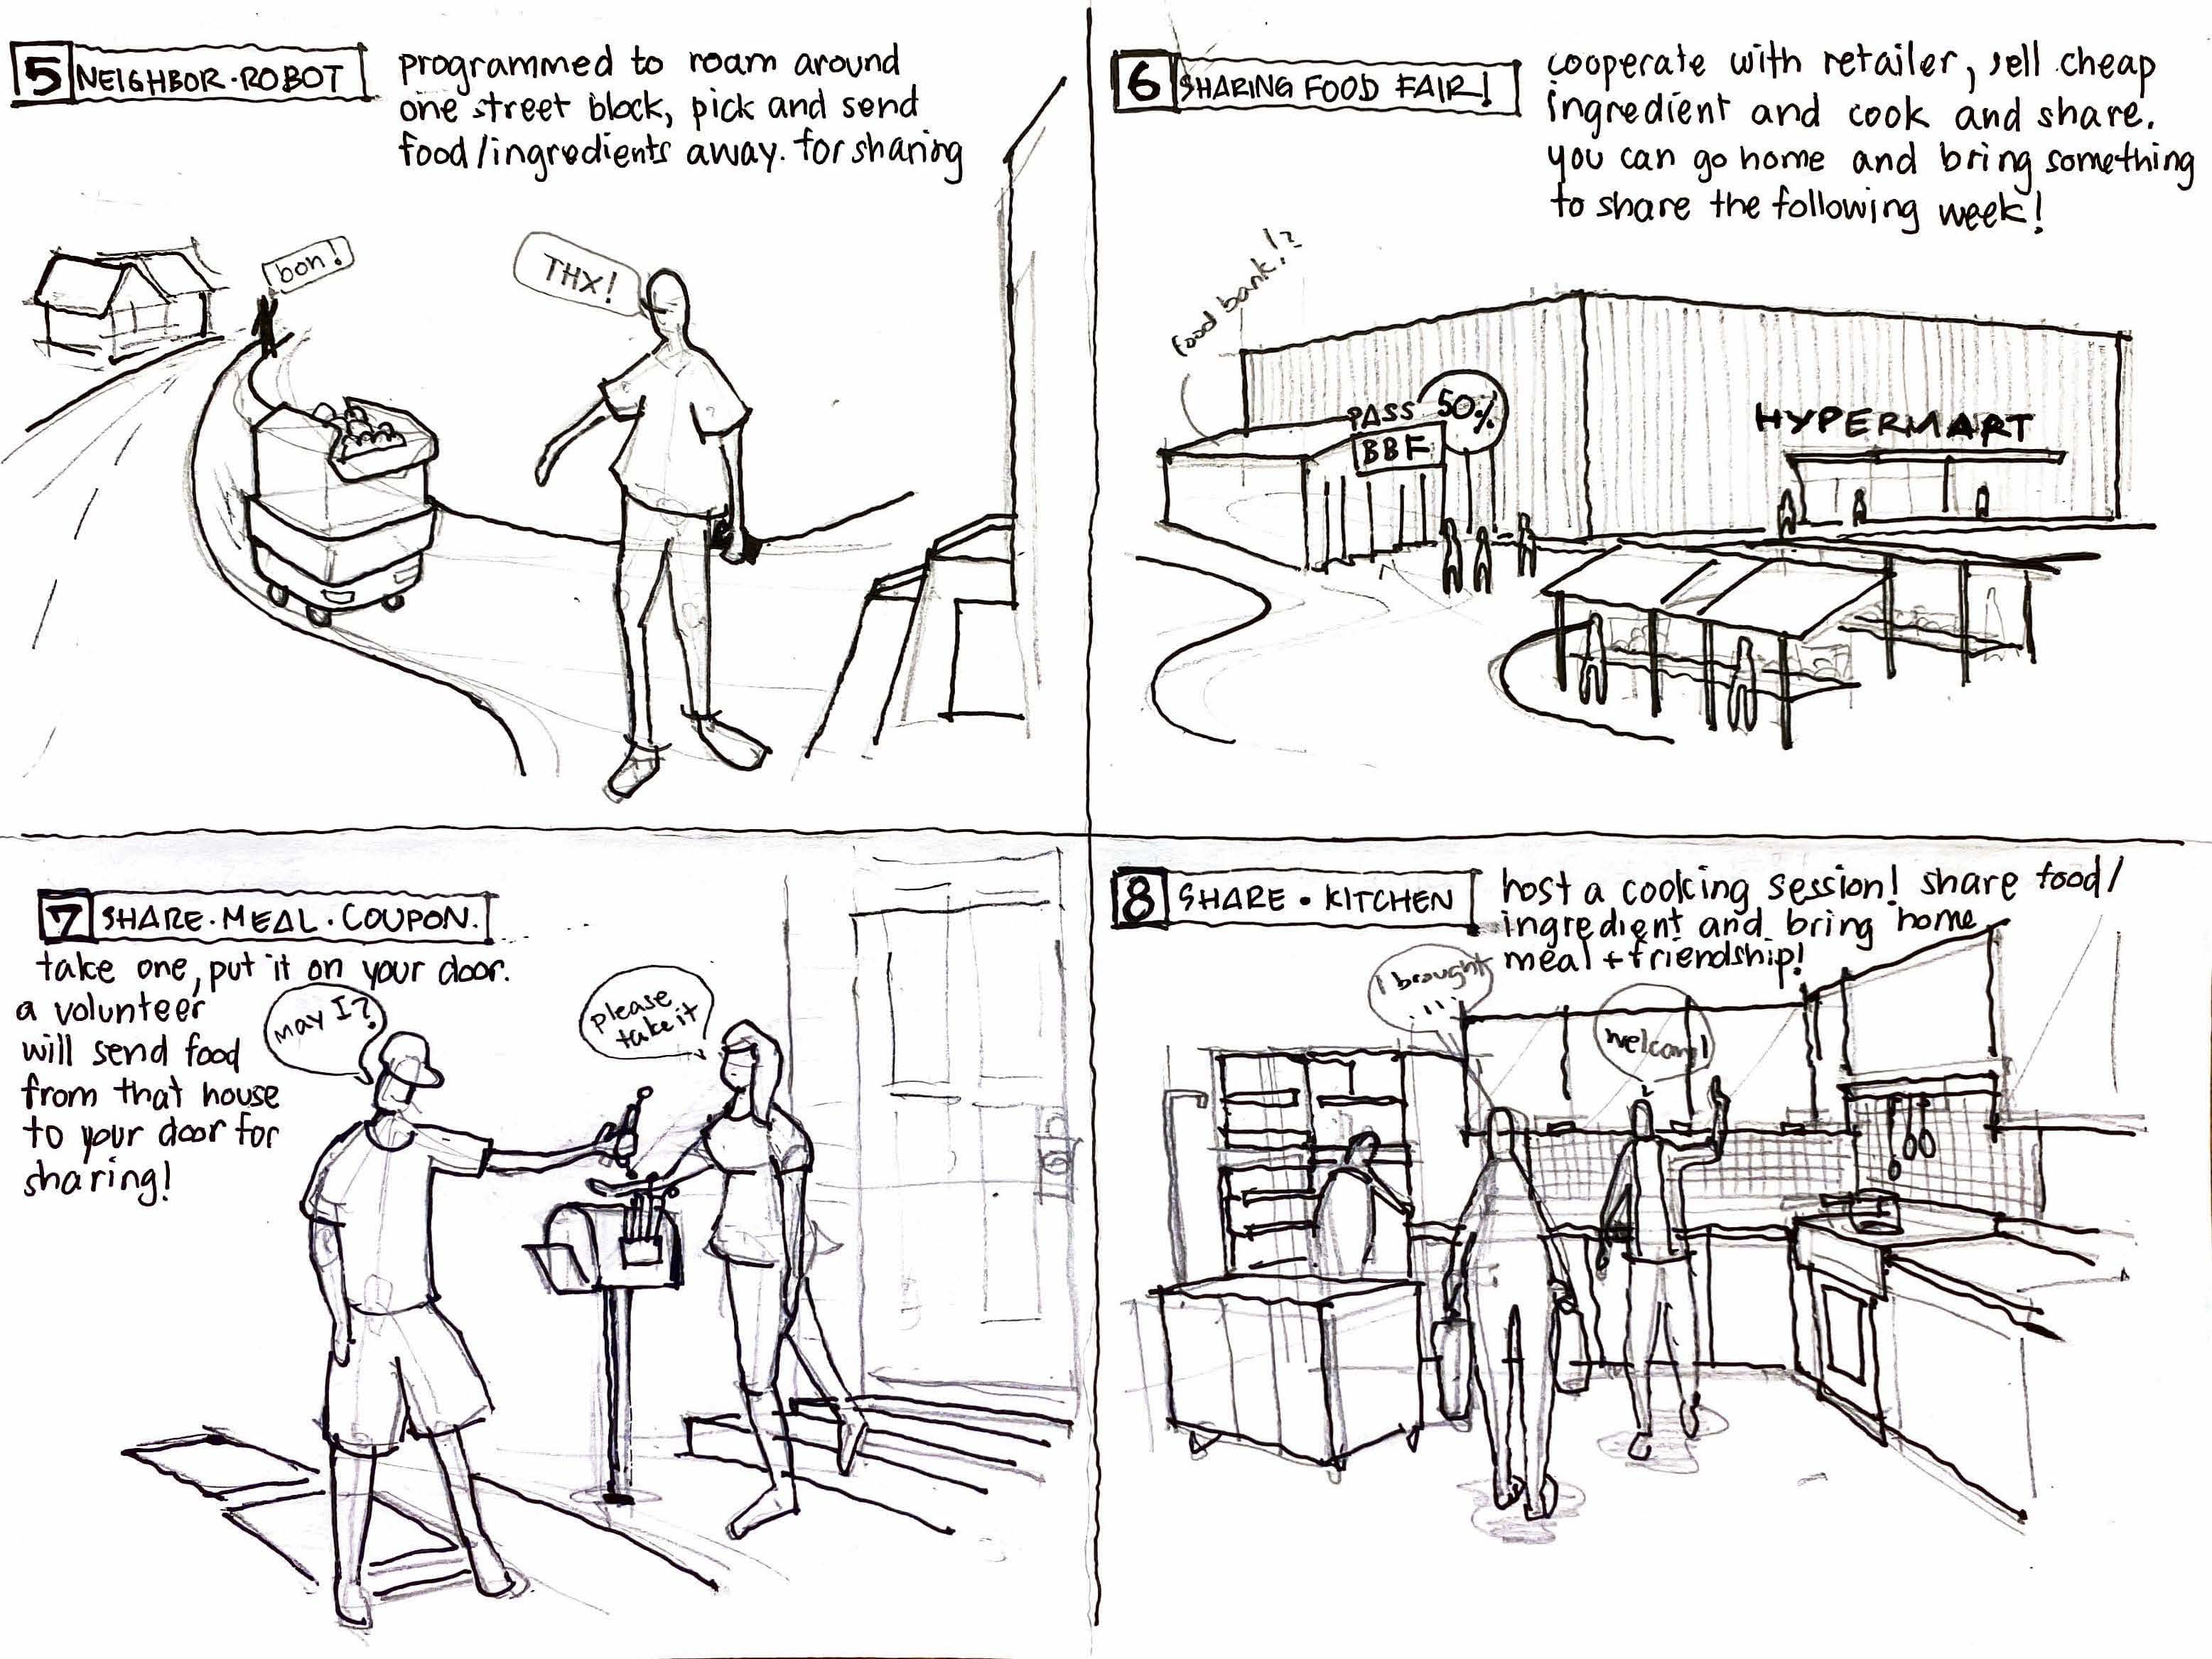 5 NEIGHBOR·ROBOT
programmed to roam around
one street block, pick and send
food/ingredients away. for sharing
bon!
THX!
6 SHARING FOOD FAIR!
cooperate with retailer, sell cheap
ingredient and cook and share.
you can go home and bring something
to share the following week!
food bank!?
PASS 50%
BBF
HYPERMART
7 SHARE·MEAL·COUPON.
take one, put it on your door.
a volunteer
will send food
from that house
to your door for
sharing!
may I?
please
take it
8 SHARE·KITCHEN
host a cooking session! share food/
ingredient and bring home
meal + friendship!
I brought
...
welcome!